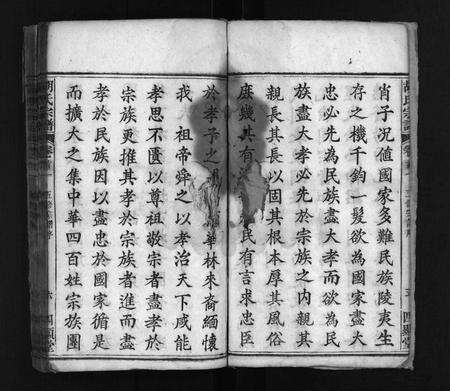 胡氏宗譜
肖子況値國家多難民族陵夷生
存之機千鈞一髮欲為國家盡大
忠必先為民族盡大孝而欲為民
族盡大孝必先於宗族之内親其
親長其長以固其根本厚其風俗
庶幾其有民有言求忠臣
於孝子之華林來裔緬懷
我 祖帝舜之以孝治天下咸能
孝思不匱以尊祖敬宗者盡孝於
宗族更推其孝於宗族者進而盡
孝於民族因以盡忠於國家循是
而擴大之集中華四百姓宗族團
胡氏宗譜